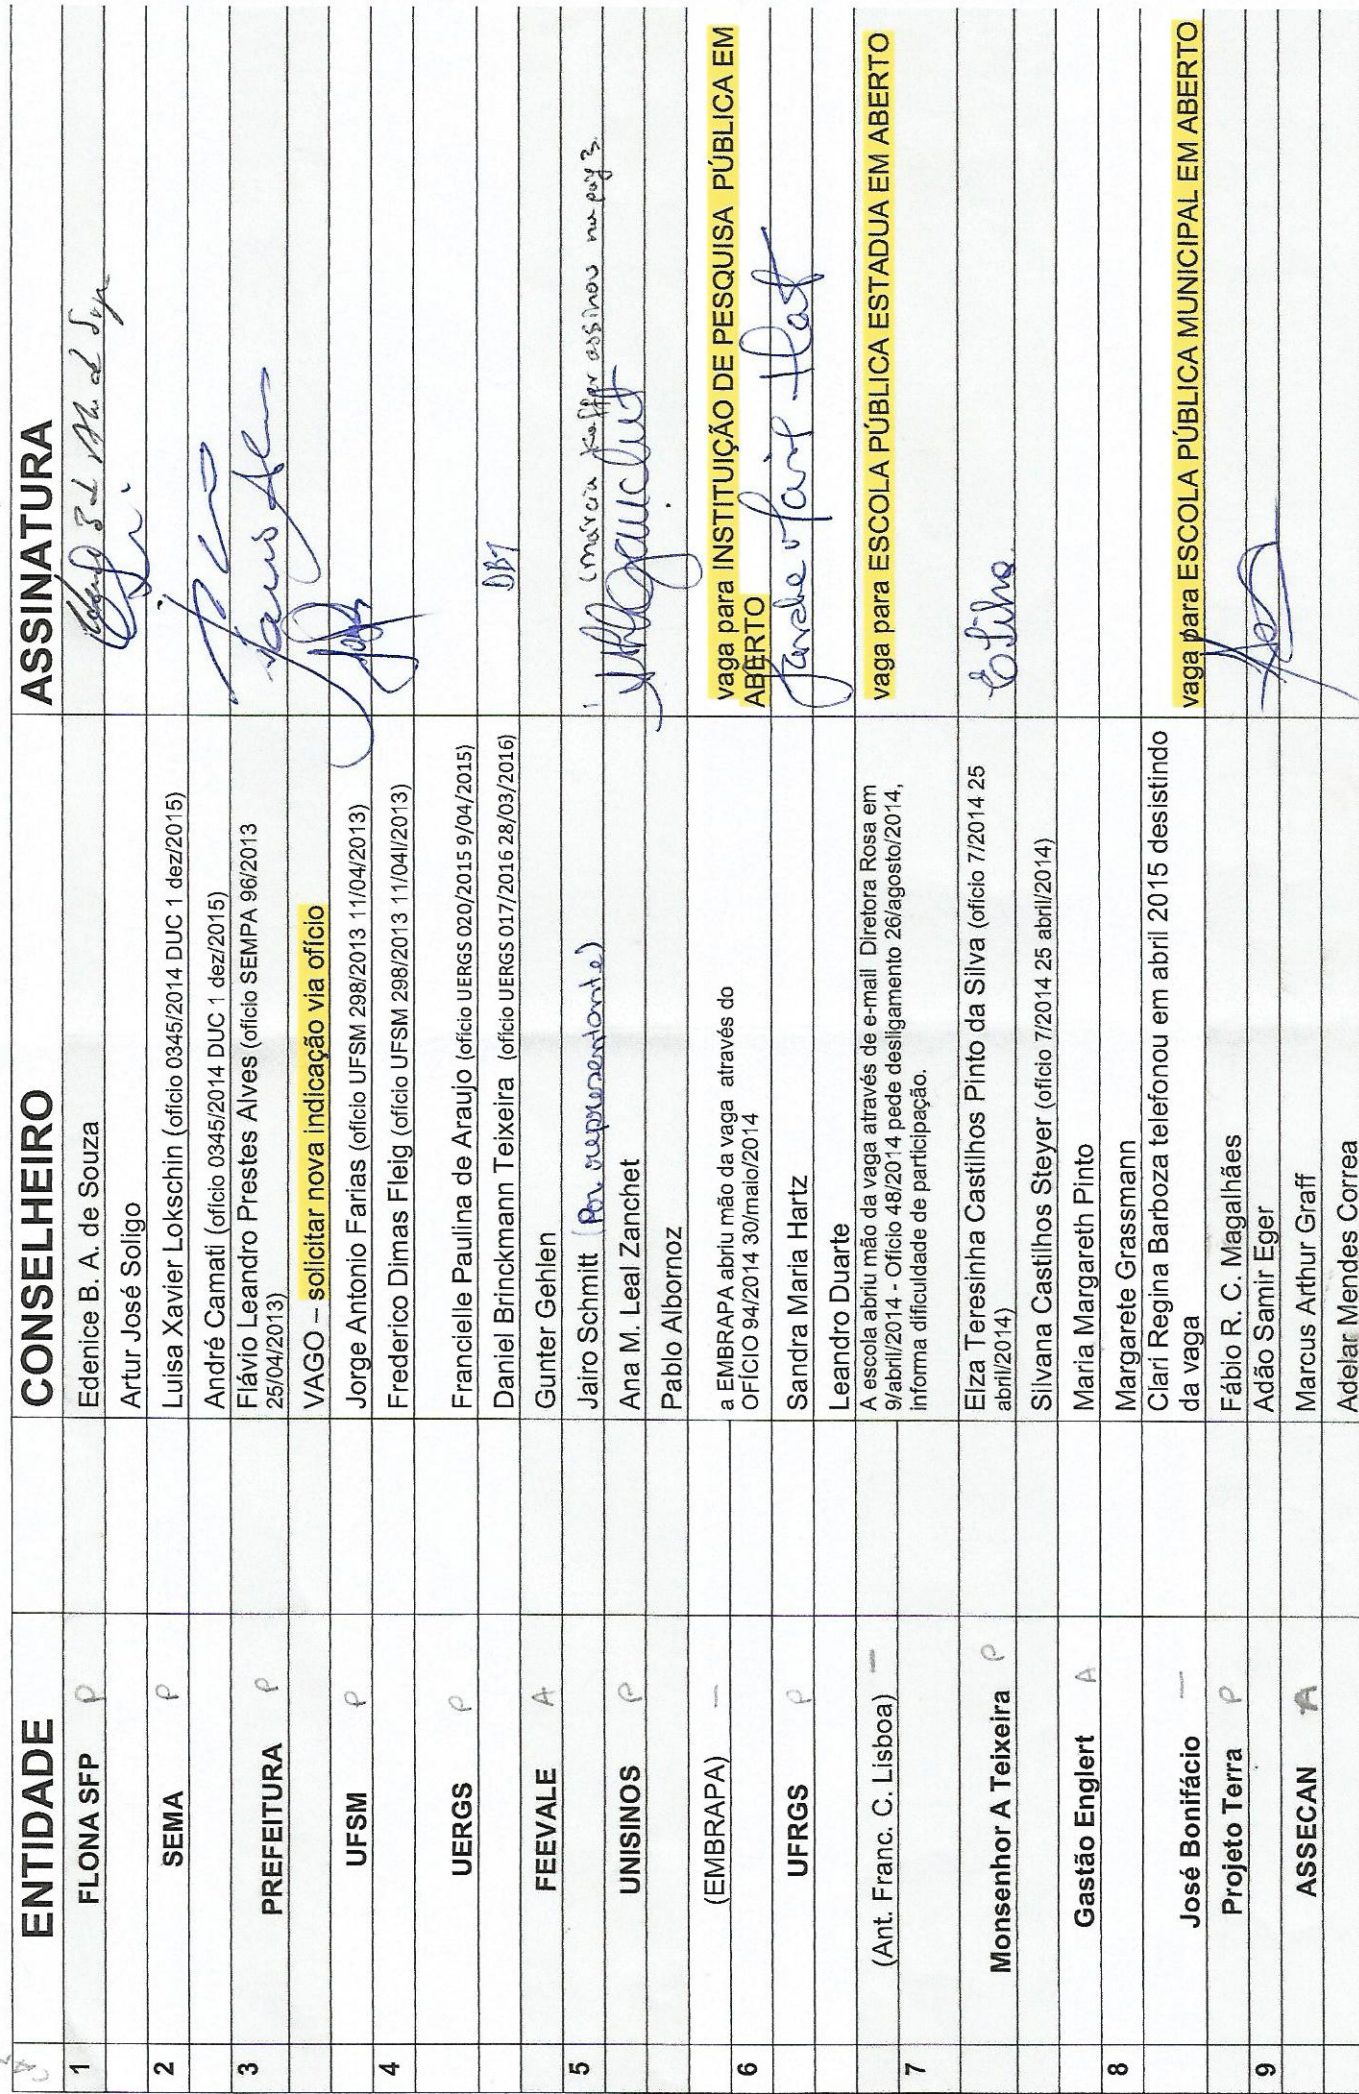 ENTIDADE CONSELHEIRO ASSINATURA
1 FLONA SFP P Edenice B. A. de Souza
Artur José Soligo
2 SEMA P Luisa Xavier Lokschin (ofício 0345/2014 DUC 1 dez/2015)
André Camati (ofício 0345/2014 DUC 1 dez/2015)
3 PREFEITURA P Flávio Leandro Prestes Alves (ofício SEMPA 96/2013
25/04/2013)
VAGO – solicitar nova indicação via ofício
UFSM P Jorge Antonio Farias (ofício UFSM 298/2013 11/04/2013)
4 Frederico Dimas Fleig (ofício UFSM 298/2013 11/04l/2013)
UERGS P Francielle Paulina de Araujo (ofício UERGS 020/2015 9/04/2015)
Daniel Brinckmann Teixeira (ofício UERGS 017/2016 28/03/2016) DBT
FEEVALE A Gunter Gehlen
5 Jairo Schmitt (Por representante) (Márcia Keffer assinou na pag 3.
UNISINOS P Ana M. Leal Zanchet
Pablo Albornoz
(EMBRAPA) — a EMBRAPA abriu mão da vaga através do
OFÍCIO 94/2014 30/maio/2014
vaga para INSTITUIÇÃO DE PESQUISA PÚBLICA EM
ABERTO
6 UFRGS P Sandra Maria Hartz
Leandro Duarte
(Ant. Franc. C. Lisboa) — A escola abriu mão da vaga através de e-mail Diretora Rosa em
9/abril/2014 - Ofício 48/2014 pede desligamento 26/agosto/2014,
informa dificuldade de participação.
vaga para ESCOLA PÚBLICA ESTADUA EM ABERTO
7 Monsenhor A Teixeira P Elza Teresinha Castilhos Pinto da Silva (ofício 7/2014 25
abril/2014) ESilva
Silvana Castilhos Steyer (ofício 7/2014 25 abril/2014)
Gastão Englert A Maria Margareth Pinto
8 Margarete Grassmann
José Bonifácio — Clari Regina Barboza telefonou em abril 2015 desistindo
da vaga
vaga para ESCOLA PÚBLICA MUNICIPAL EM ABERTO
Projeto Terra P Fábio R. C. Magalhães
9 Adão Samir Eger
ASSECAN A Marcus Arthur Graff
Adelar Mendes Correa